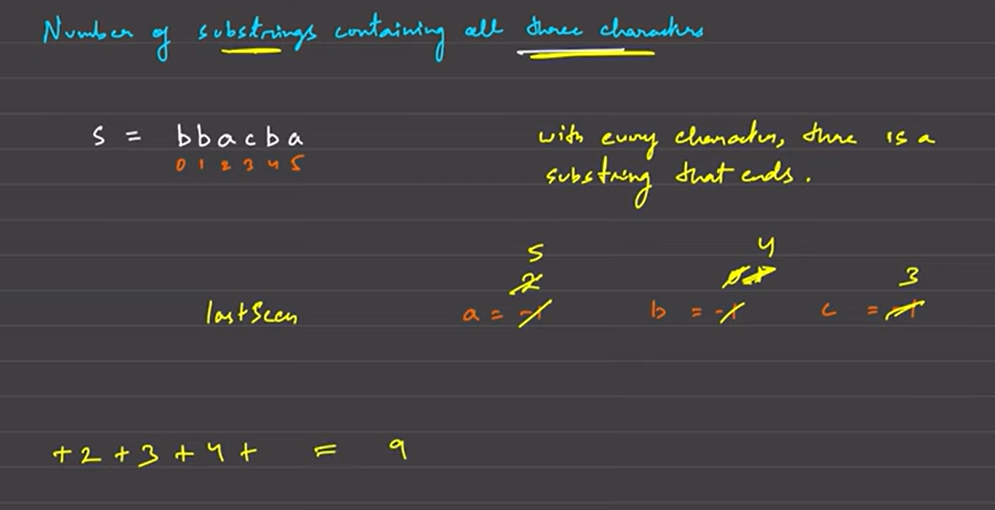 Number of substrings containing all three characters
s = bbacba
0 1 2 3 4 5
with every character, there is a
substring that ends.
5 4
2 3
lastSeen a = -1 b = -1 c = -1
+2 +3 +4 + = 9